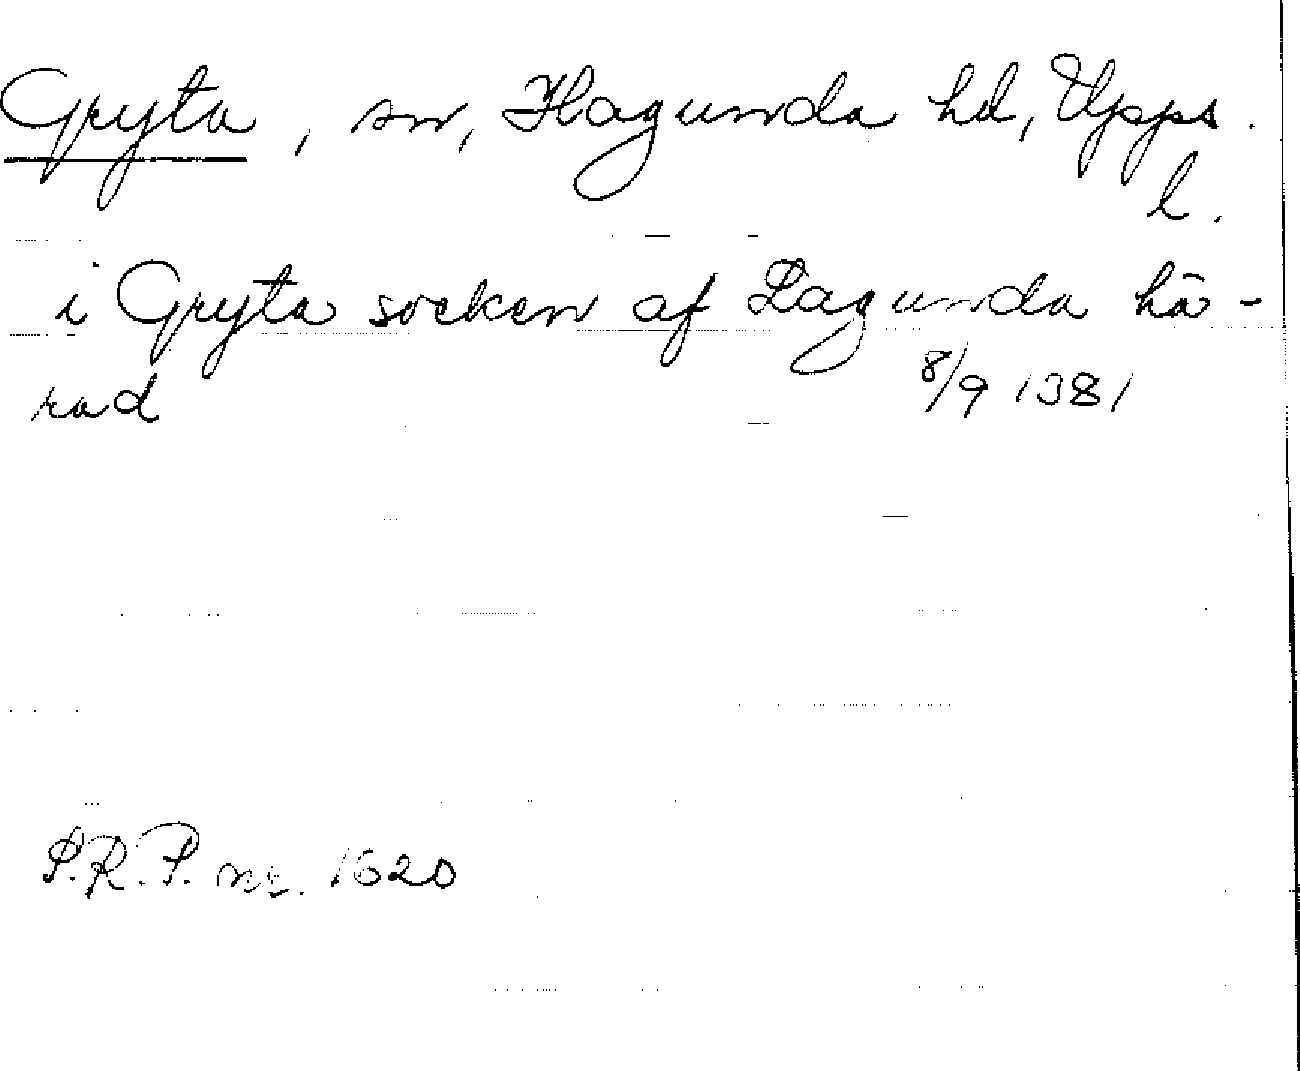 Gryta, sn, Hagunda hd, Upps.
l.
i Gryta socken af Lagunda hä-
rad 8/9 1381
S.R.P. nr. 1620